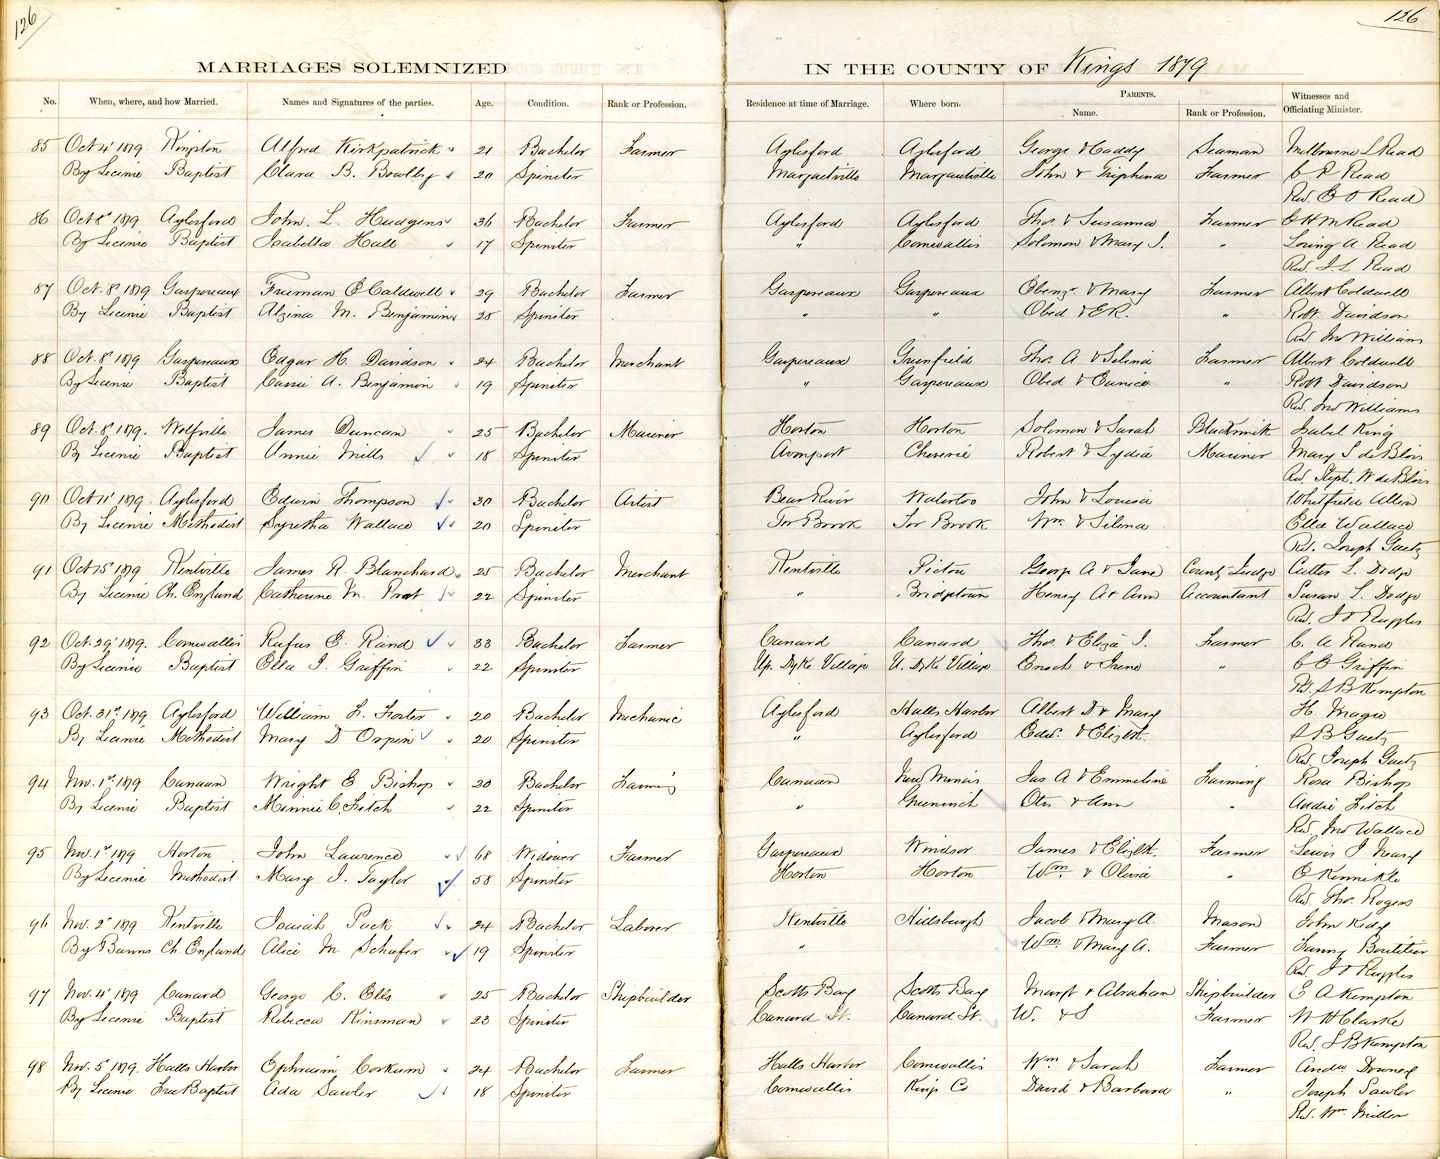 126
126
MARRIAGES SOLEMNIZED IN THE COUNTY OF Kings 1879
No. When, where, and how Married. Names and Signatures of the parties. Age. Condition. Rank or Profession. Residence at time of Marriage. Where born. PARENTS. Name. Rank or Profession. Witnesses and Officiating Minister.
85 Oct 4' 1879. Kingston Alfred Kirkpatrick 21 Bachelor Farmer Aylesford Aylesford George & Caddy Seaman Melbourne L Read
By License Baptist Clara B. Bowlby 20 Spinster Margaretville Margaretville John & Triphena Farmer C R Read
Rev. E O Read
86 Oct 8' 1879 Aylesford John. L. Hudgens 36 Bachelor Farmer Aylesford Aylesford Thos. & Susanna Farmer Read
By License Baptist Isabella Hall 17 Spinster " Cornwallis Solomon & Mary J. " Loring A Read
Rev. J L Read
87 Oct. 8' 1879 Gaspereaux Freeman C Caldwell 29 Bachelor Farmer Gaspereaux Gaspereaux Ebenzr. & Mary Farmer Albert Coldwell
By License Baptist Alzina M. Benjamin 25 Spinster " " Obed & E R. " Robt Davidson
Rev Jno Williams
88 Oct. 8' 1879 Gaspereaux Edgar H. Davidson 24 Bachelor Merchant Gaspereaux Greenfield Thos. A & Selina Farmer Albert Coldwell
By License Baptist Cassie A. Benjamin 19 Spinster " Gaspereaux Obed & Eunice " Robt Davidson
Rev. Jno Williams
89 Oct. 8' 1879. Wolfville James Duncan 25 Bachelor Mariner Horton Horton Solomon & Sarah Blacksmith Isabel King
By License Baptist Annie Mills 18 Spinster Avonport Cheverie Robert & Lydia Mariner Mary S de Blois
Rev. Steph. W de Blois
90 Oct 11' 1879. Aylesford Edwin Thompson 30 Bachelor Artist Bear River Waterloo John & Louisa Whitfield Allen
By License Methodist Syretha Wallace 20 Spinster Tor Brook Tor Brook Wm. & Silena Ella Wallace
Rev. Joseph Gaetz
91 Oct 15' 1879 Kentville James R. Blanchard 25 Bachelor Merchant Kentville Pictou George A & Jane County Judge Cutler L. Dodge
By License Ch. England Catherine M. Prat 22 Spinster " Bridgetown Henry A & Ann Accountant Susan L. Dodge
Rev. J O Ruggles
92 Oct. 29' 1879. Cornwallis Rufus E. Rand 33 Bachelor Farmer Canard Canard Thos. & Eliza J. Farmer C. A Rand
By License Baptist Ella J. Griffin 22 Spinster Up. Dyke Village U. Dyke Village Enoch & Irene " C O Griffin
Rev. S B Kempton
93 Oct. 31st 1879 Aylesford William H. Foster 20 Bachelor Mechanic Aylesford Halls Harbor Albert D & Mary H. Magee
By License Methodist Mary D Orpin 20 Spinster " Aylesford Edw. & Elizth. S B Gaetz
Rev. Joseph Gaetz
94 Nov. 1st 1879 Canaan Wright E Bishop 20 Bachelor Farming Canaan New Minas Jas A & Emmeline Farming Rosa Bishop
By License Baptist Minnie C. Fitch 22 Spinster " Greenwich Otis & Ann " Addie Fitch
Rev. Jno Wallace
95 Nov. 1st 1879 Horton John Lawrence 68 Widower Farmer Gaspereaux Windsor James & Elizth. Farmer Lewis J Neary
By License Methodist Mary J. Taylor 58 Spinster Horton Horton Wm. & Olivia " C Rennikle
Rev. Thos. Rogers
96 Nov. 2' 1879 Kentville Isaiah Pack 24 Bachelor Laborer Kentville Hillsburgh Jacob & Mary A. Mason John Kidy
By Banns Ch. England Alice M. Schafer 19 Spinster " Wm. & Mary A. Farmer Fanny Boutilier
Rev. J O Ruggles
97 Nov. 4' 1879 Canard George C. Ells 25 Bachelor Shipbuilder Scotts Bay Scotts Bay Margt & Abraham Shipbuilder E A Kempton
By License Baptist Rebecca Kinsman 23 Spinster Canard St. Canard St. W. & S Farmer W H Clarke
Rev. S B Kempton
98 Nov. 5' 1879. Halls Harbor Ephraim Corkum 24 Bachelor Farmer Halls Harbor Cornwallis Wm & Sarah Farmer Downey
By License Free Baptist Ada Sawler 18 Spinster Cornwallis Kings Co David & Barbara " Joseph Sawler
Rev. Wm. Miller